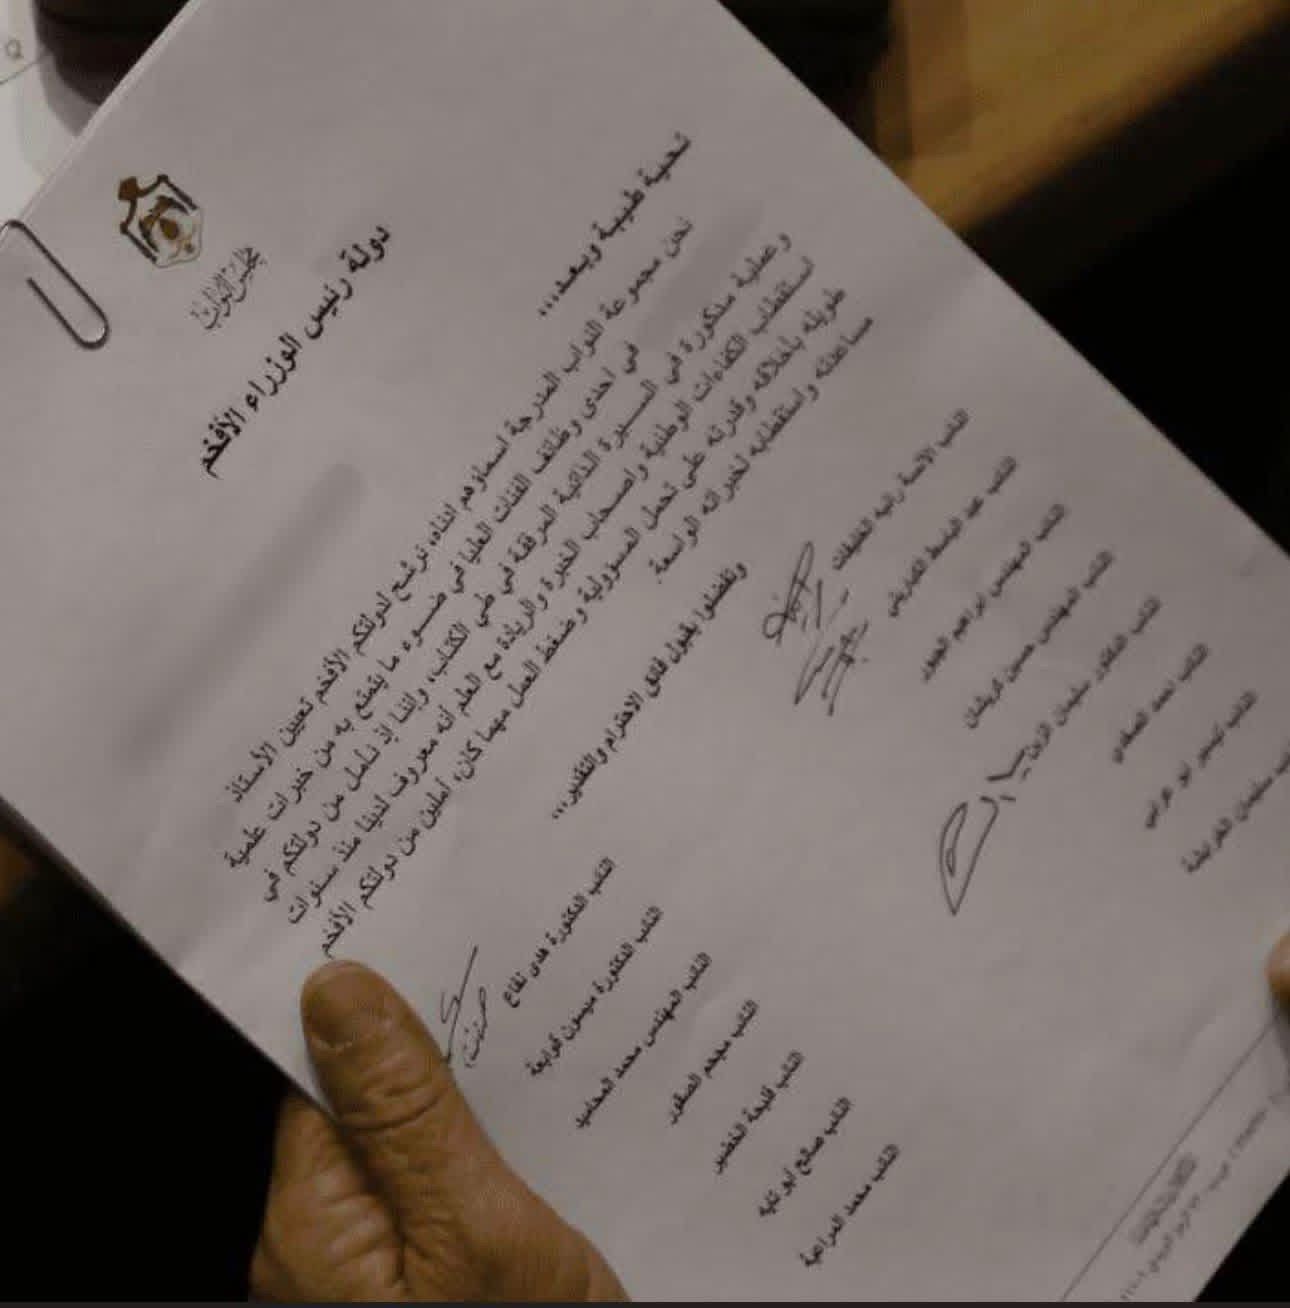 مجلس النواب
دولة رئيس الوزراء الأفخم
تحية طيبة وبعد،،،
نحن مجموعة النواب المدرجة اسماؤهم ادناه، نرشح لدولتكم الأفخم تعيين الأستاذ
في احدى وظائف الفئات العليا في ضوء ما يتمتع به من خبرات علمية
وعملية مذكورة في السيرة الذاتية المرفقة في طي الكتاب، واننا إذ نأمل من دولتكم في
استقطاب الكفاءات الوطنية واصحاب الخبرة والريادة مع العلم أنه معروف لدينا منذ سنوات
طويله بأخلاقه وقدرته على تحمل المسؤولية وضغط العمل مهما كان، آملين من دولتكم الأفخم
مساعدته واستقطابه لخبراته الواسعة.
وتفضلوا بقبول فائق الاحترام والتقدير،،،
النائب الآنسة رانيه الخليفات
النائب الدكتورة هدى نفاع
النائب عبد الباسط الكباريتي
النائب الدكتورة ميسون قوابعة
النائب المهندس ابراهيم الجبور
النائب المهندس محمد المحارمة
النائب المهندس حسين كريشان
النائب مجحم الصقور
النائب الدكتور سليمان الزبن
النائب فليحة الخضير
النائب احمد الصفدي
النائب صالح أبو تايه
النائب تيسير ابو عرابي
النائب محمد المراعية
سليمان الغريضة